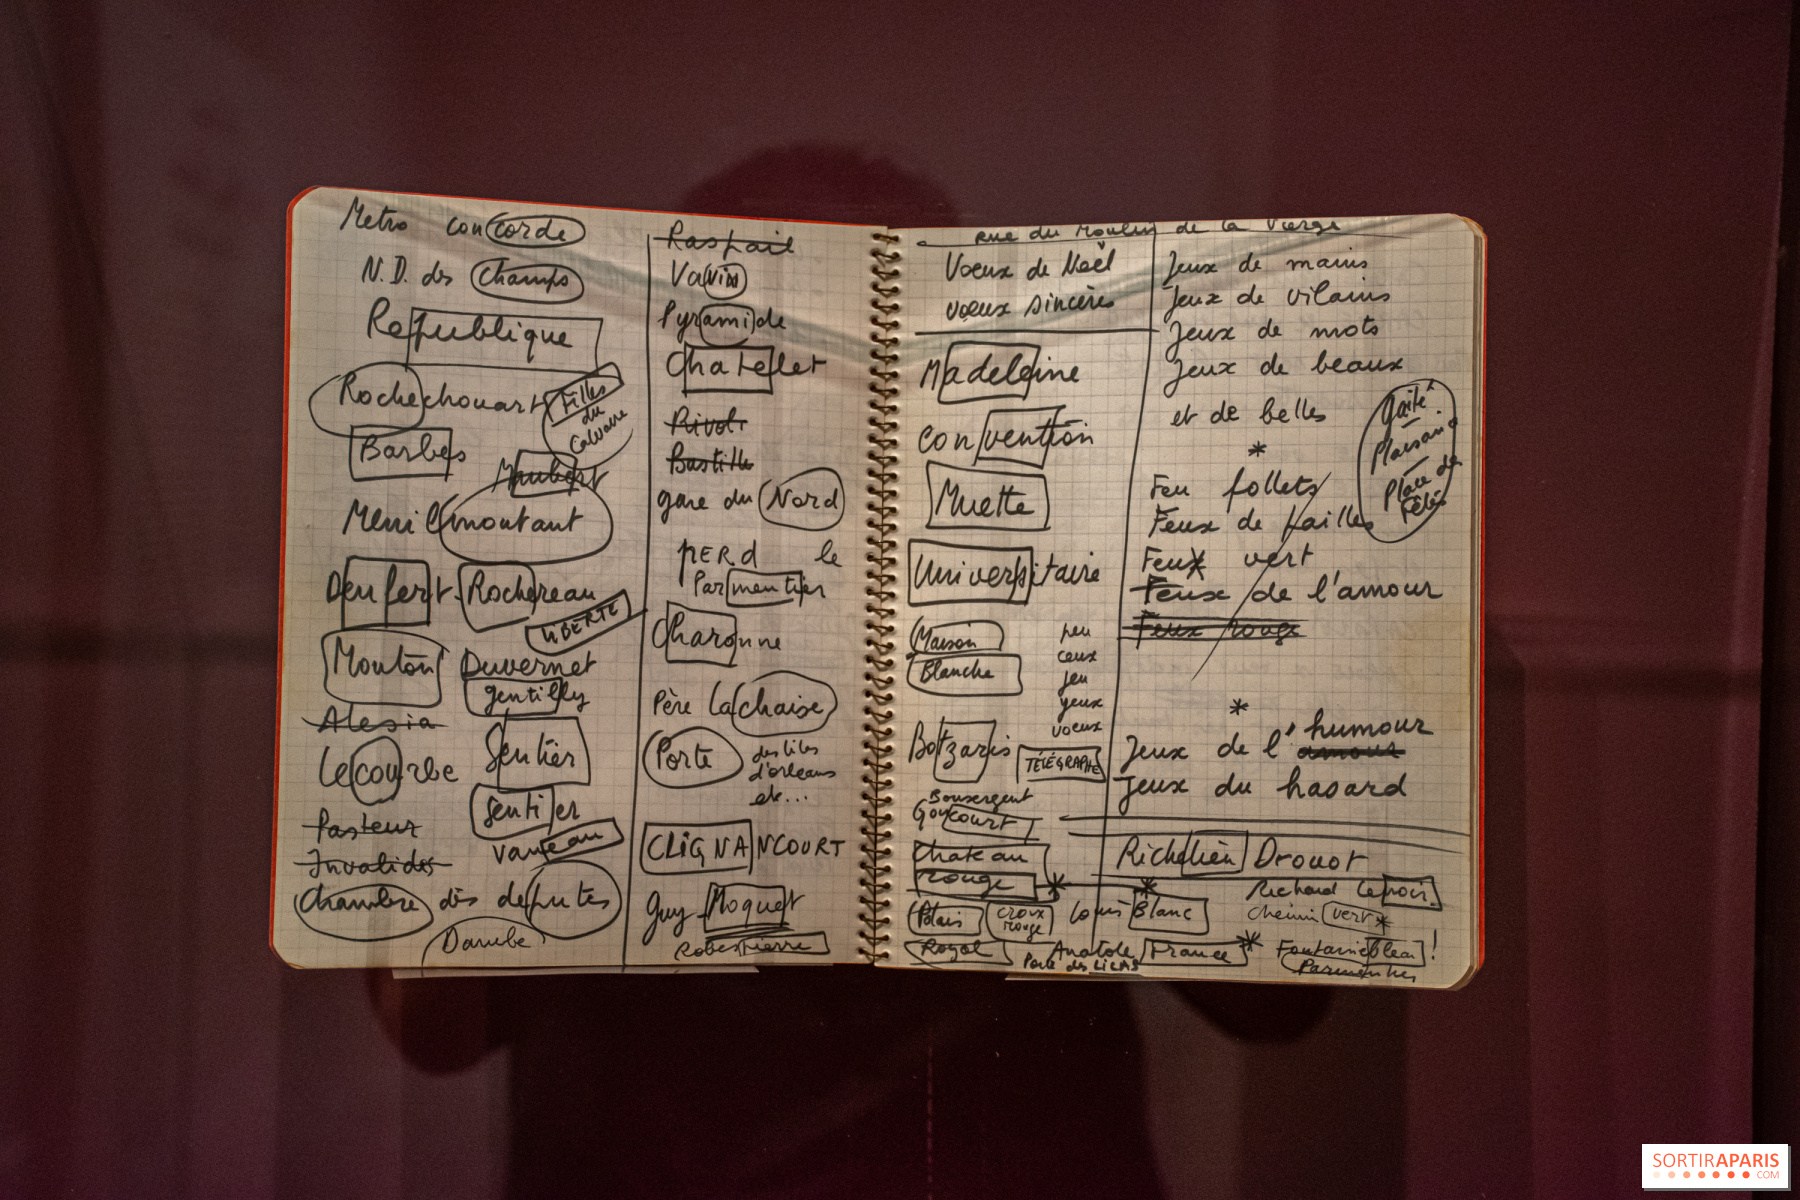 Metro concorde
N.D. des champs
Republique
Rochechouart
Filles
du
Calvaire
Barbes
Maubert
Menilmontant
Denfert-Rochereau
LIBERTE
Mouton Duvernet
gentilly
Alesia
Lecourbe
Sentier
Sentier
Pasteur
Vaneau
Invalides
Chambre dès deputes
Danube
Raspail
Vavin
Pyramide
Chatelet
Rivoli
Bastille
gare du Nord
PERd le
Parmentier
Charonne
Père Lachaise
Porte
des lilas
d'orleans
etc...
CLIGNANCOURT
Guy Moquet
Robespierre
rue du Moulin de la Vierge
Voeux de Noël
voeux sincères
Madeleine
convention
Muette
Universitaire
Maison
Blanche
peu
ceux
jeu
yeux
voeux
Botzaris
TÉLÉGRAPHE
Bonsergent
Goncourt
chateau
rouge
Palais
Royal
croix
rouge
Louis Blanc
Anatole France
Porte des LiLAS
Jeux de mains
Jeux de vilains
Jeux de mots
Jeux de beaux
et de belles
Gaité
Plaisance
Place des
Fêtes
Feu follets
Feux de pailles
Feux vert
Feux de l'amour
Feux rouge
Jeux de l'amour humour
Jeux du hasard
Richelieu Drouot
Richard Lenoir
chemin vert
Fontainebleau!
Parmentier
SORTIRAPARIS
.COM